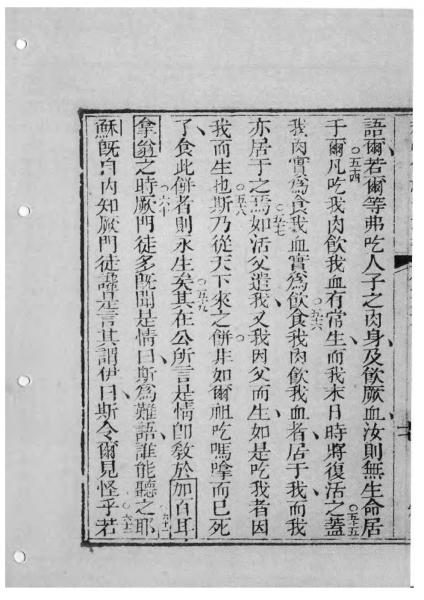 語爾若爾等弗吃人子之肉身及飲厥血汝則無生命居
于爾凡吃我肉飲我血有常生而我末日時將復活之蓋
我肉實為食我血實為飲食我肉飲我血者居于我而我
亦居于之焉如活父遣我又我因父而生如是吃我者因
我而生也斯乃從天下來之餅非如爾祖吃嗎嗱而已死
了食此餅者則永生矣其在公所言是情即敎於加百耳
拿翁之時厥門徒多旣聞是情曰斯爲難語誰能聽之耶
穌旣自內知厥門徒譁是言其謂伊曰斯令爾見怪乎若